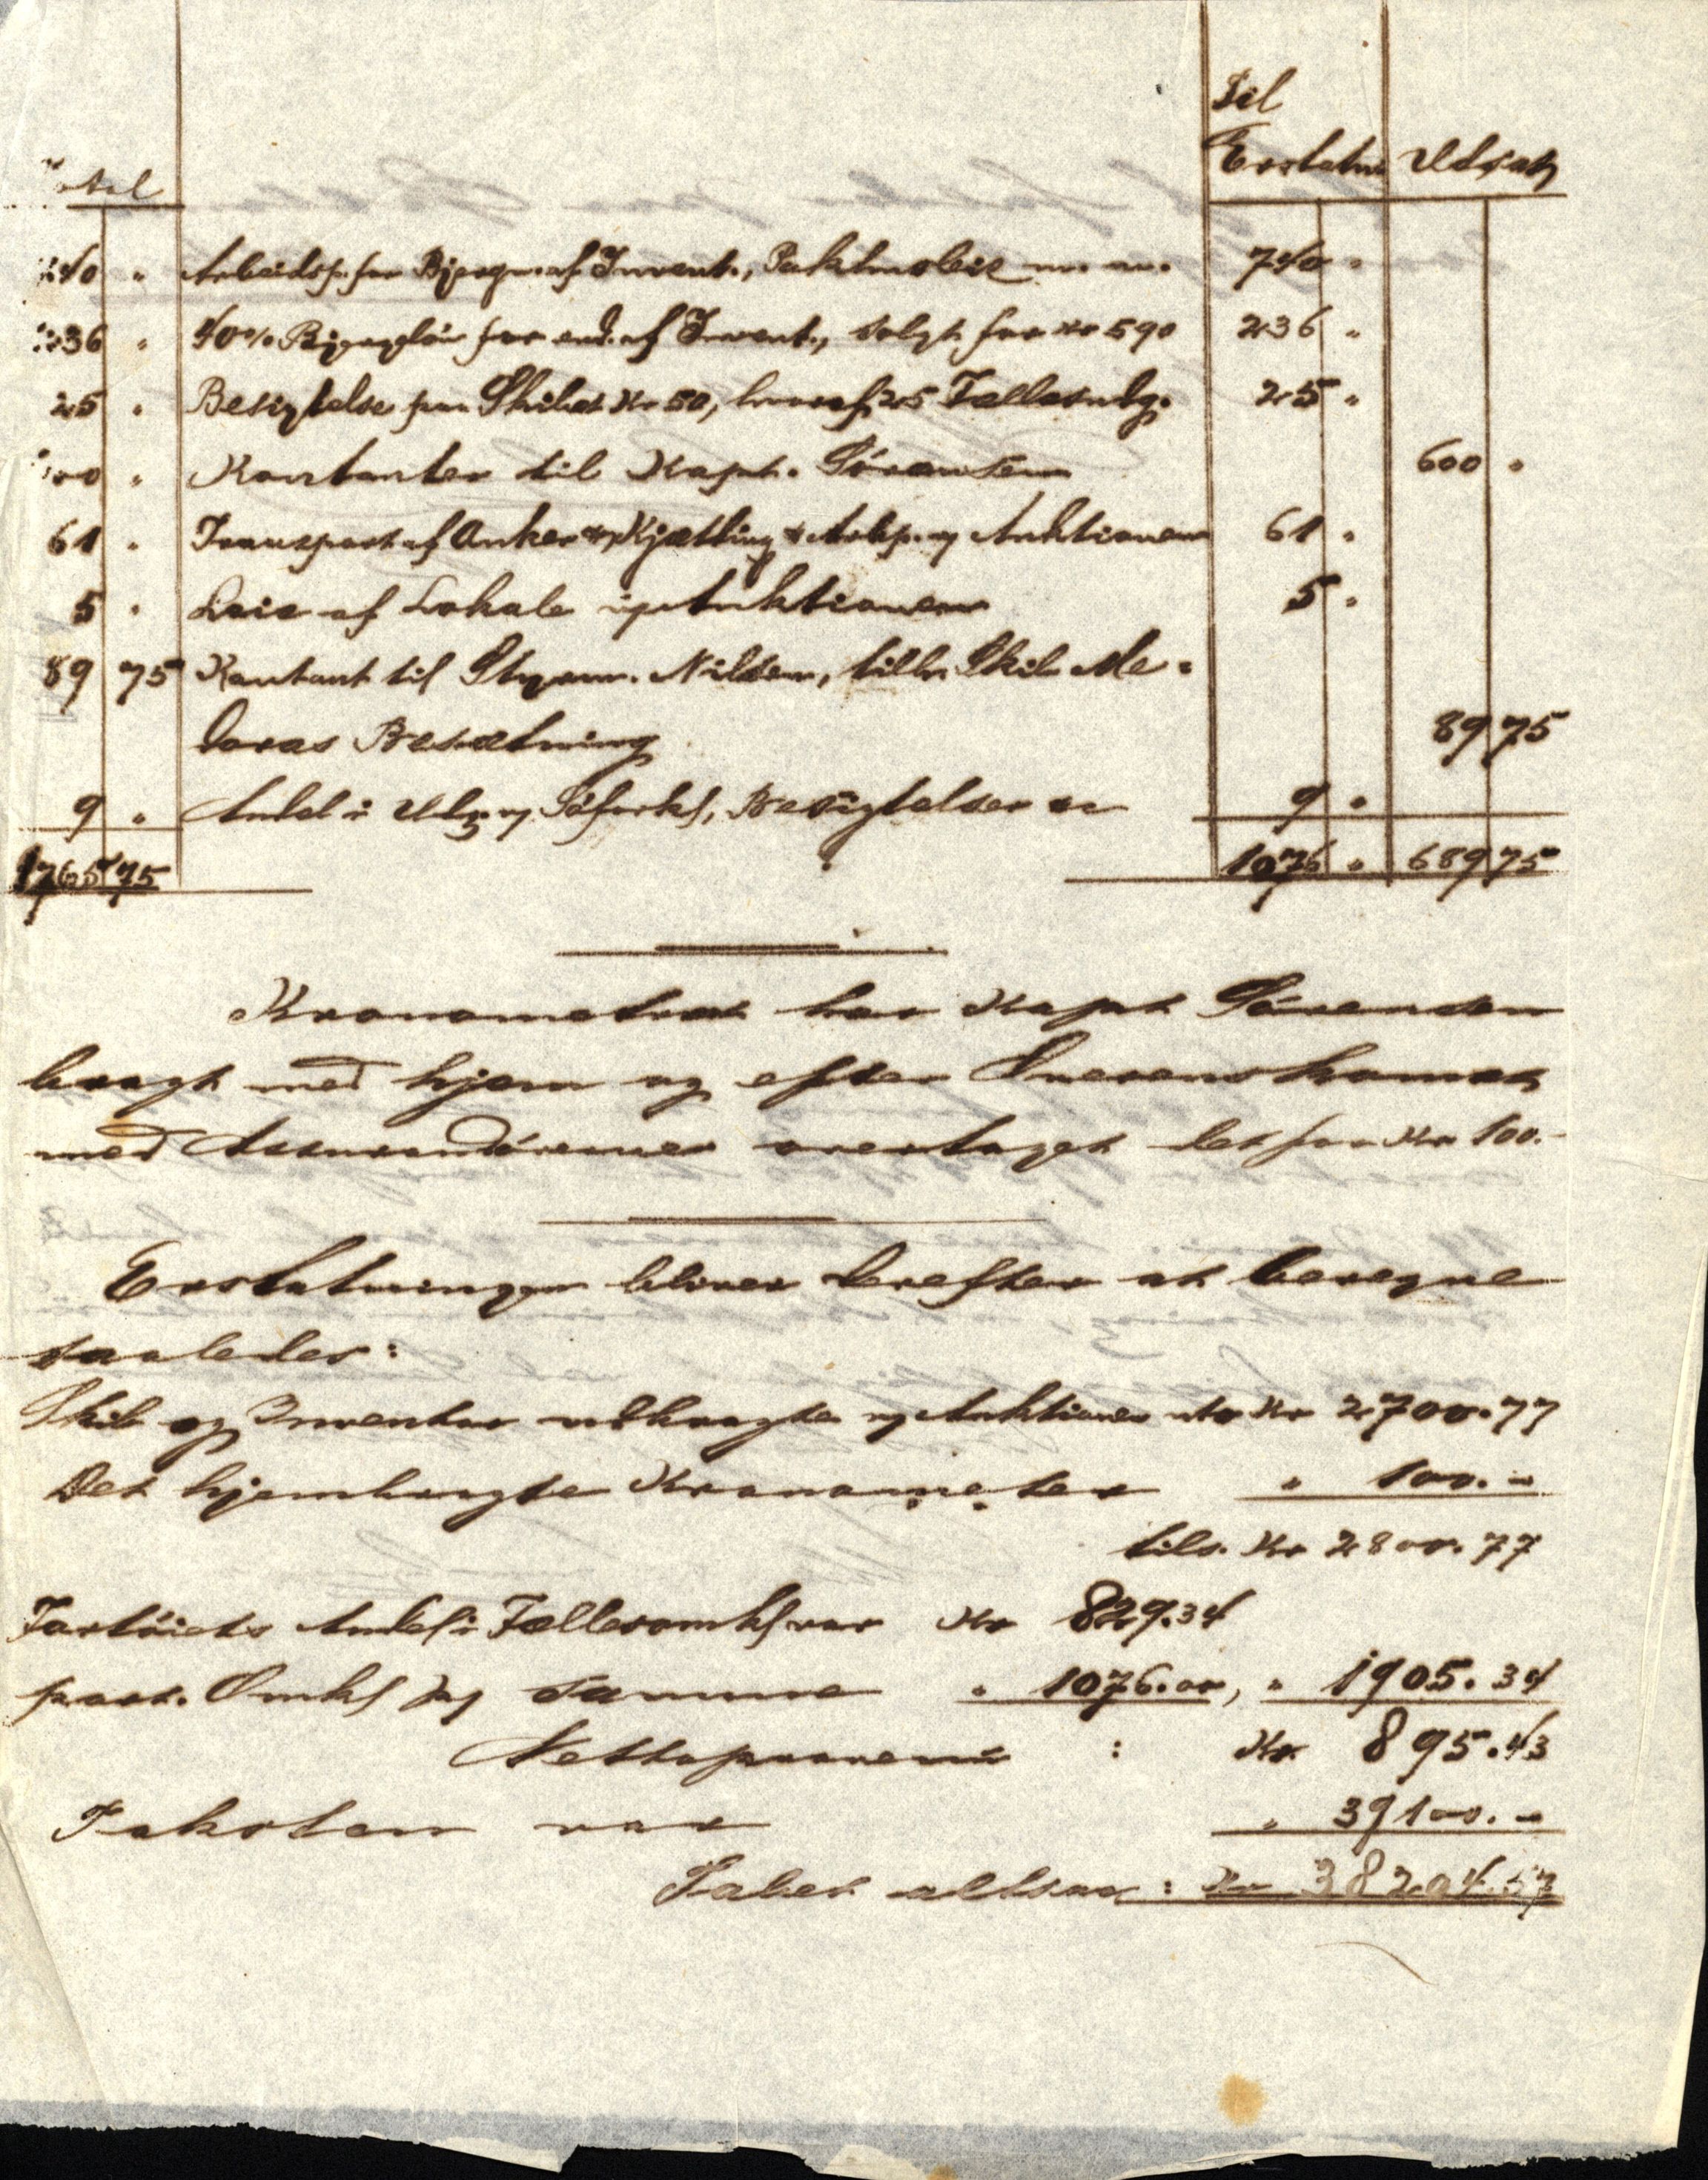 Til
Erstatn. Udsat
240 " Arbeidsp. for Bjergn. af Invent., Pakhusleie m. m. 740 "
236 " 40% Bjergeløn for end. af Invent., solgt for Kr 590 236 "
25 " Besigtelse paa Skibet Kr 50, hvoraf 25 Fællesudg. 25 "
" Kontanter til Kapt. Sörensen 600 "
61 " Transport af Anker & Kjætting & Arbp. v/ Auktionen 61 "
5 " Leie af Lokale v/ Auktionen 5 "
89 75 Kontant til Styrm. Nilsen, tilh. Skib Me-
doras Besætning 89 75
9 " Andel i Udg. v/ Söforkl., Besigtelser &c 9 "
1765 75 1076 " 689 75
Kronometret har Kapt Sörensen
bragt med hjem og efter Overenskomst
med Assurandörerne overtaget det for Kr 100.-
Erstatningen bliver derefter at beregne
saaledes:
Skib og Inventar udbragte v/ Auktioner ntr Kr 2700.77
Det hjembragte Kronometer " 100.-
tils. Kr 2800.77
Fartöiets Andel i Fællesomk. var Kr 829.34
part. Omk. paa samme " 1076.00, " 1905.34
Nettoprovenü : Kr. 895.43
Taksten var " 39100.-
Tabet altsaa : Kr 38204.57